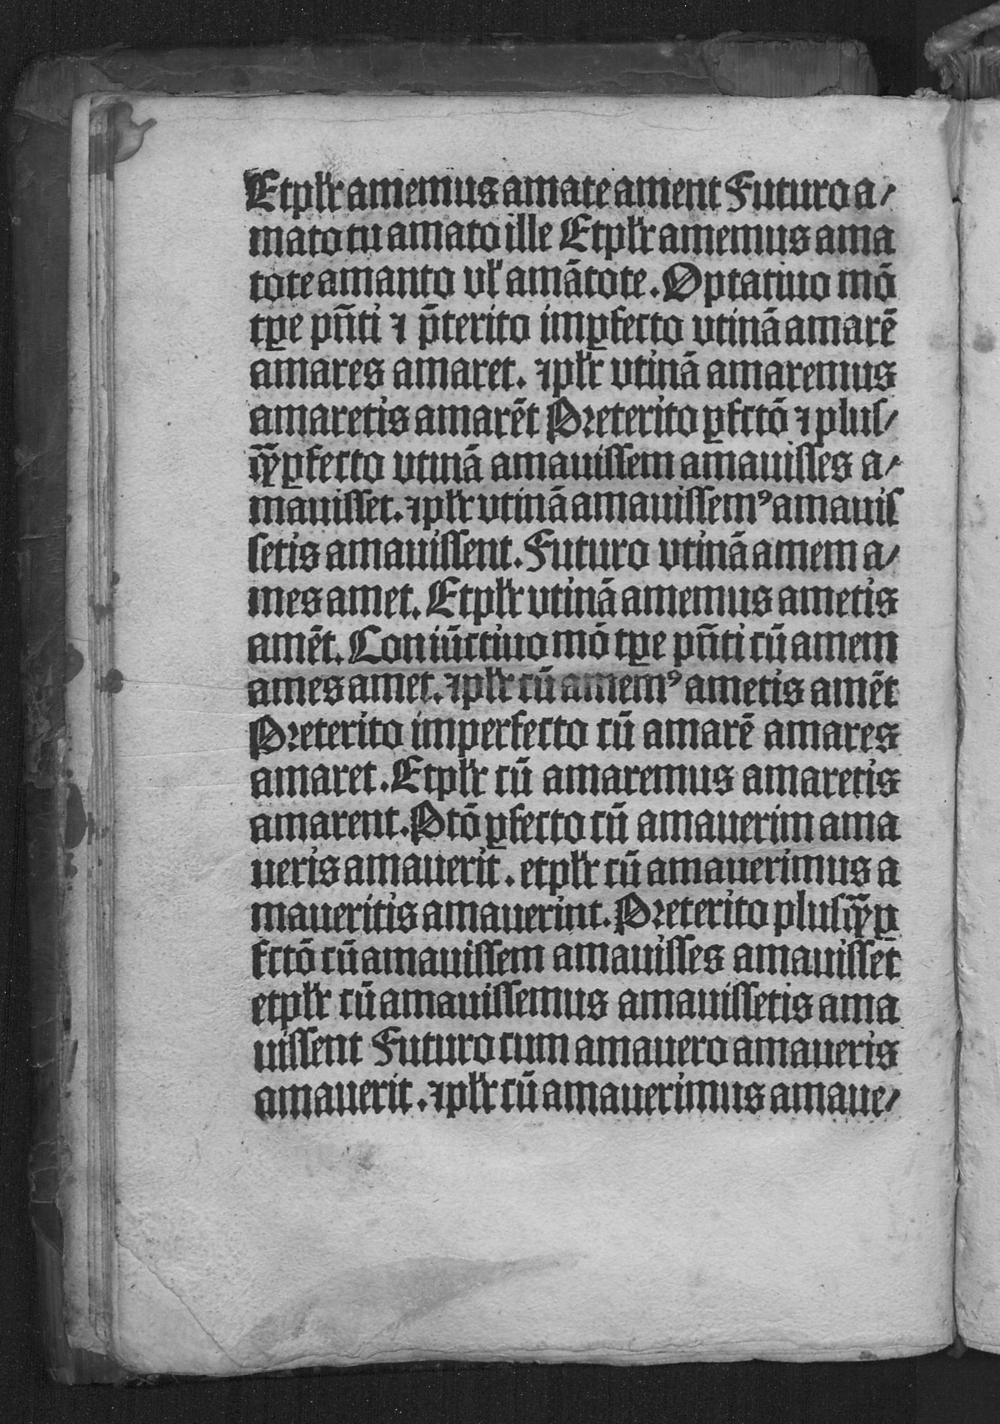 Etplꝛ̄ amemus amate ament Futuro a/
mato tu amato ille Etplꝛ̄ amemus ama
tote amanto vl̄ amātote. Optatiuo mō
tꝑe pn̄ti ⁊ p̄terito imꝑfecto vtinā amarē
amares amaret. ⁊plꝛ̄ vtinā amaremus
amaretis amarēt Pꝛeterito ꝑfctō ⁊ pluſ/
ꝙ̄ꝑfecto vtinā amauiſſem amauiſſes a/
mauiſſet. ⁊plꝛ̄ vtinā amauiſſemꝰ amauiſ
ſetis amauiſſent. Futuro vtinā amem a/
mes amet. Etplꝛ̄ vtinā amemus ametis
amēt. Coniūctiuo mō tꝑe pn̄ti cū amem
ames amet. ⁊plꝛ̄ cū amemꝰ ametis amēt
Pꝛeterito imperfecto cū amarē amares
amaret. Etplꝛ̄ cū amaremus amaretis
amarent. Ptō ꝑfecto cū amauerim ama
ueris amauerit. etplꝛ̄ cū amauerimus a
maueritis amauerint. Pꝛeterito pluſꝙ̄ꝑ
fctō cū amauiſſem amauiſſes amauiſſet
etplꝛ̄ cū amauiſſemus amauiſſetis ama
uiſſent Futuro cum amauero amaueris
amauerit. ⁊plꝛ̄ cū amauerimus amaue/